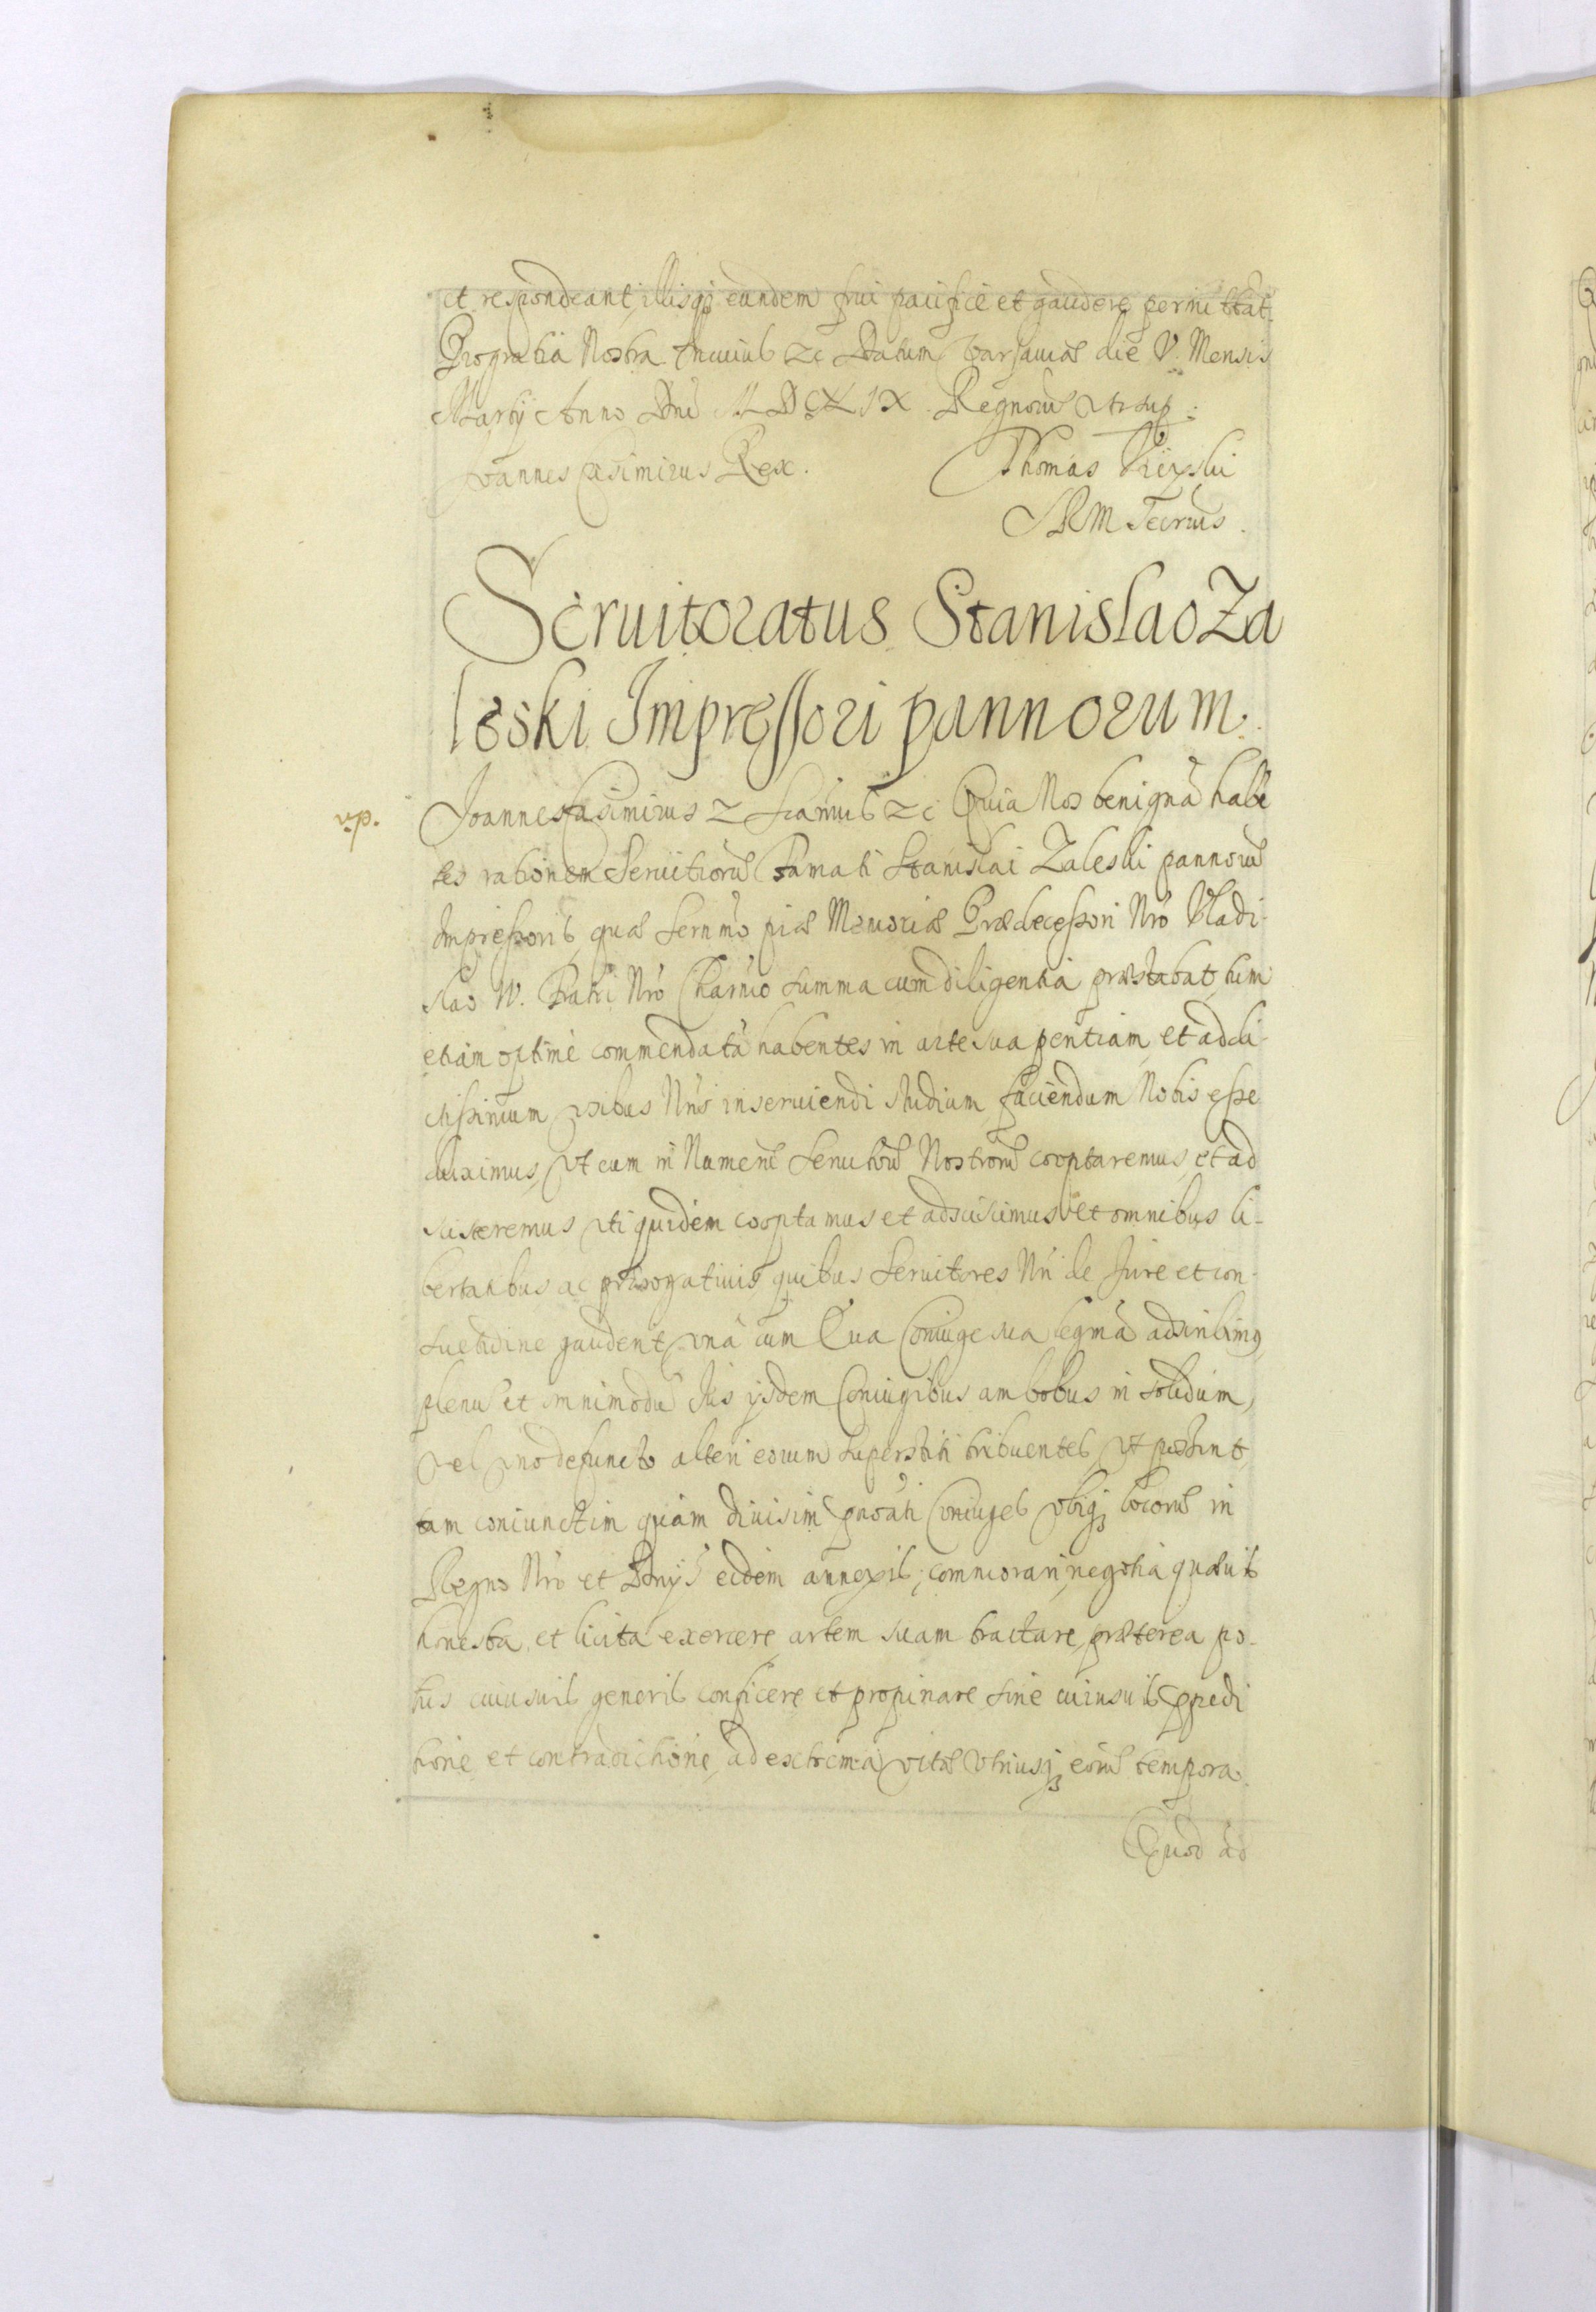 et respondeant, illisq; eundem frui pacifice et gaudere permittat.
Pro gratia Nostra In cuius &c Datum Varsauiæ die V. Mensis
Martij Anno Dni MDCXLIX Regnorũ vt sup:
Ioannes Casimirus Rex. Thomas
SRM Secrius.
Seruitoratus Stanislao Za
leski Impressori pannorum.
v.p.
Joannes Casimirus &c Quia Nos benignã habẽ
tes rationem Seruitiorũ Famati Stanislai Zaleski pannorũ
Impressoris, quæ Sernmo piæ Memoriæ Prædecessori Nro Vladi-
slao IV. Fratri Nro Charmo summa cum diligentia præstabat, tum
etiam optime commendatã habentes in arte sua peritiam, et addi-
ctissimum vsibus Nris inseruiendi studium, faciendum Nobis esse
duximus, vt eum in Numerũ Seruitorũ Nostrorũ cooptaremus, et ad
scisceremus, vti quidem cooptamus et adsciscimus et omnibus li-
bertatibus ac prærogatiuis, quibus Seruitores Nri de Jure et con-
suetudine gaudent, vnà cum Coniuge sua legmã adscribimꝯ,
plenũ et omnimodũ Jus ijsdem Coniugibus ambobus in solidum,
vel vno defuncto alteri eorum superstiti tribuentes, vt possint
tam coniunctim quàm diuisim pnoãti Coniuges vbiq; locorũ in
Regno Nro et Dnijs eidem annexis, commorari, negotia quæuis
honesta, et licita exercere, artem suam tractare, præterea po-
tus cuiusuis generis conficere et propinare sine cuiusuis ppedi
tione et contradictione, ad extrema vitæ vtriusq; eorũ tempora.
Quod ad